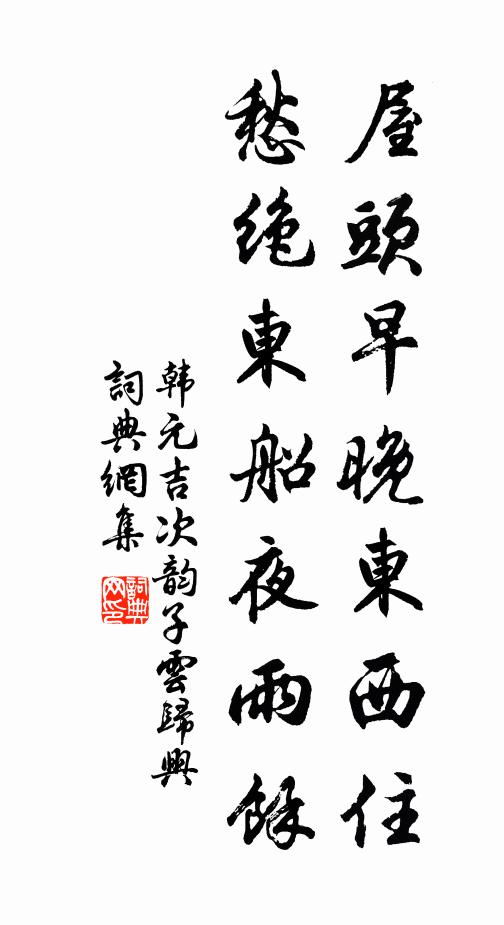 屋頭早晚東西住
愁絶東船夜雨餘
韩元吉次韵子雲歸興
詞典網集
詞典網印